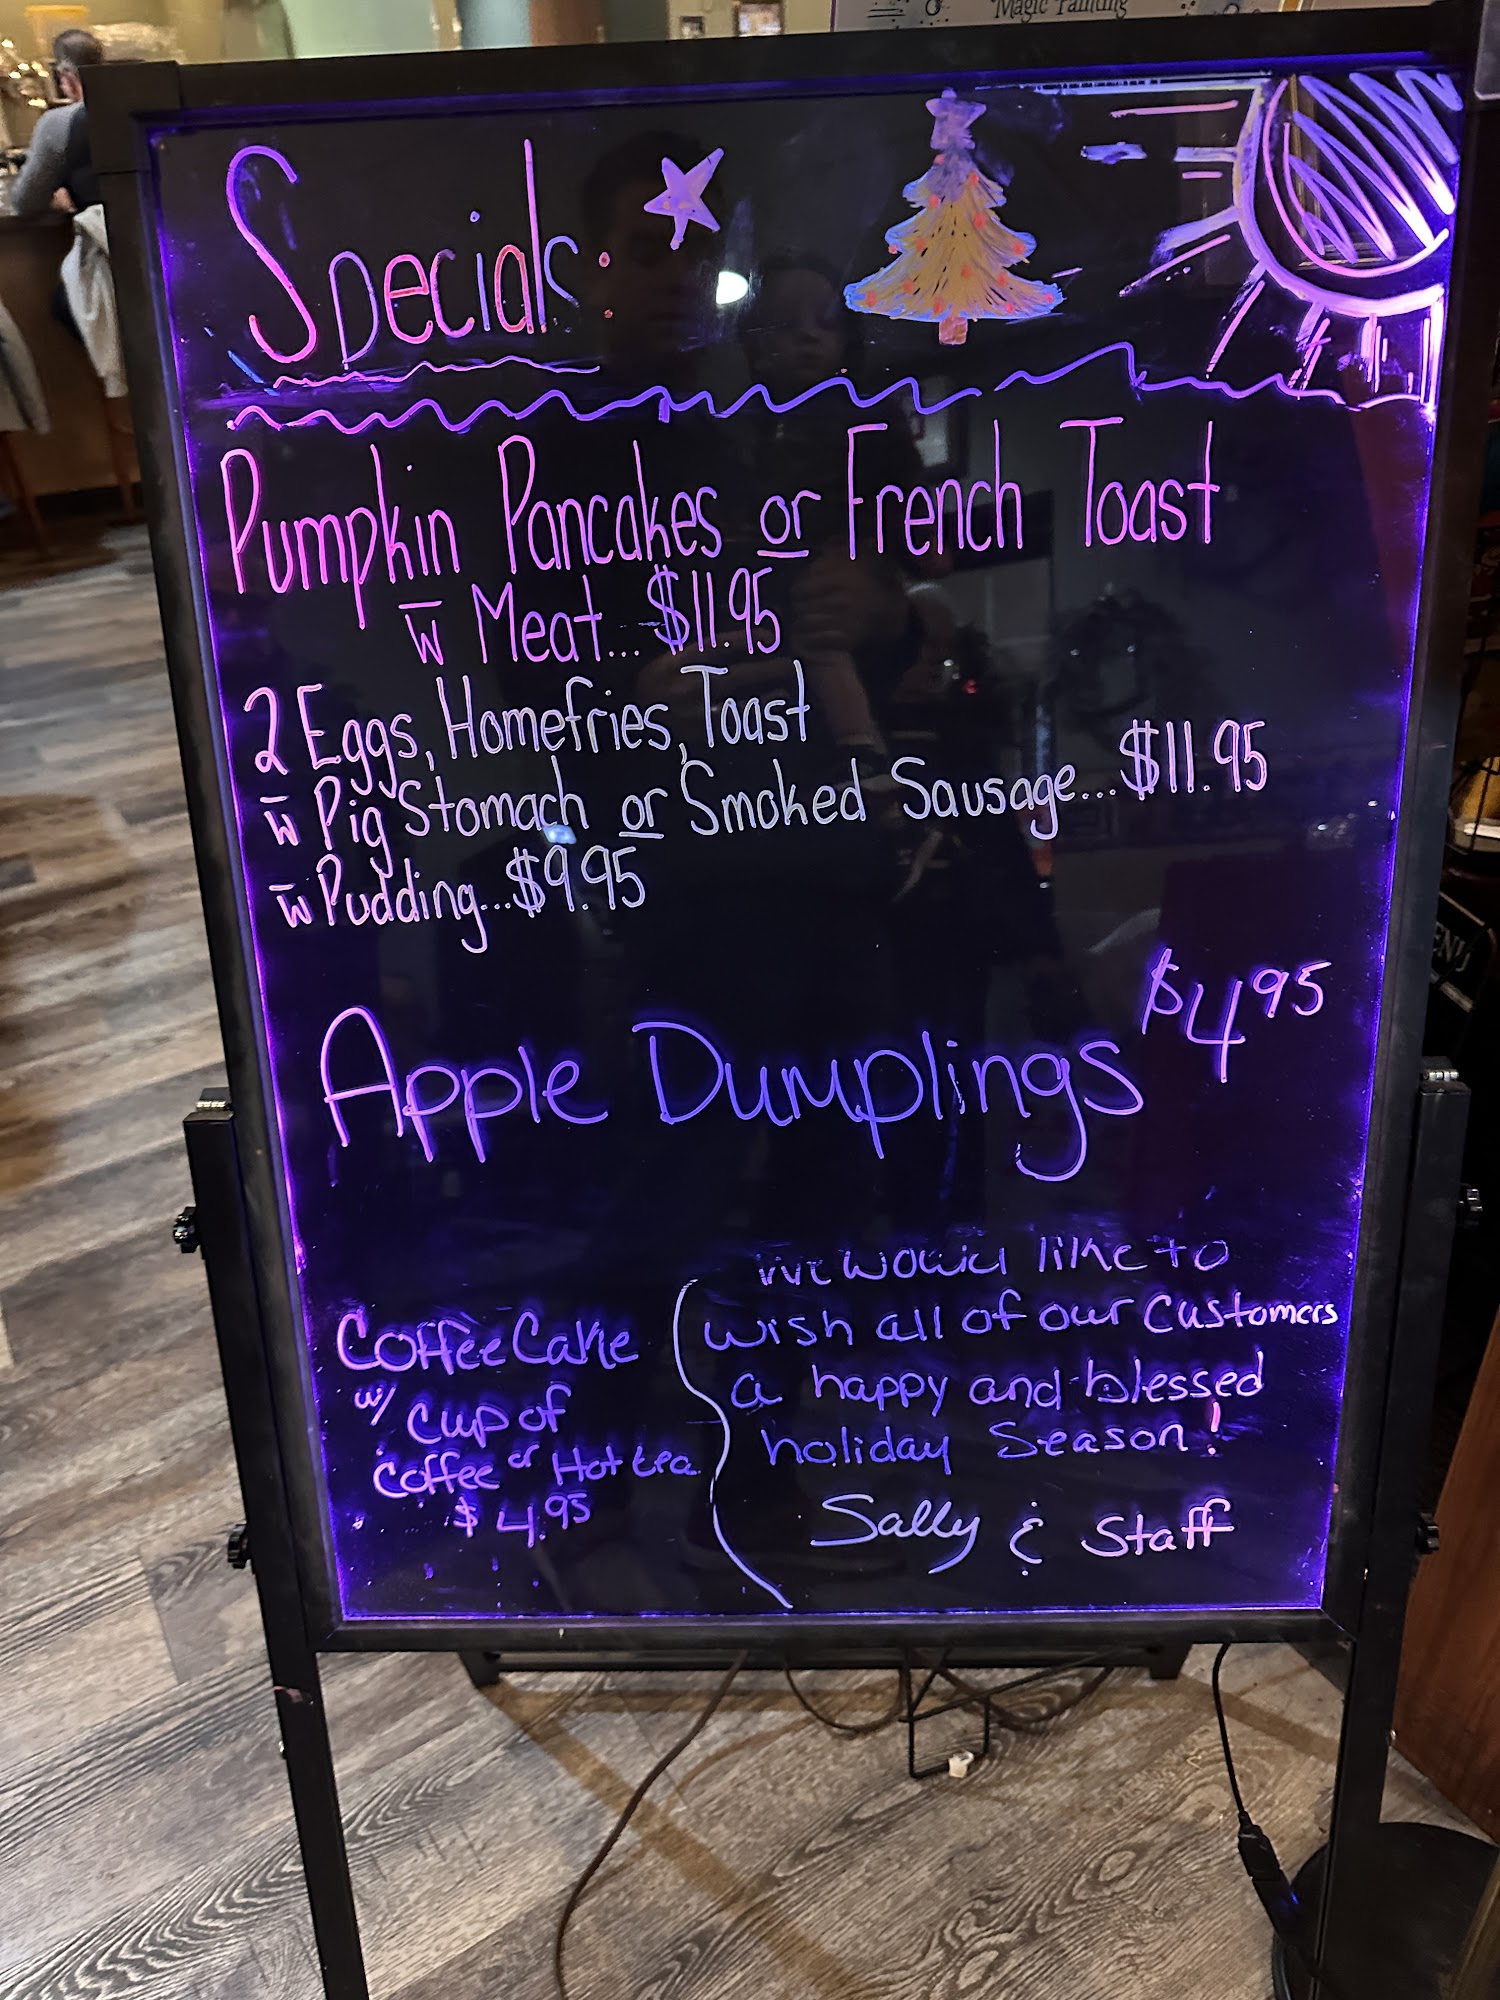 Magic Painting
Specials:
Pumpkin Pancakes or French Toast
w̅ Meat... $11.95
2 Eggs, Homefries, Toast
w̅ Pig Stomach or Smoked Sausage... $11.95
w̅ Pudding... $9.95
Apple Dumplings $4.95
Coffee Cake
w/ Cup of
Coffee or Hot tea
$4.95
We would like to
wish all of our customers
a happy and blessed
holiday Season!
Sally & Staff
MENU